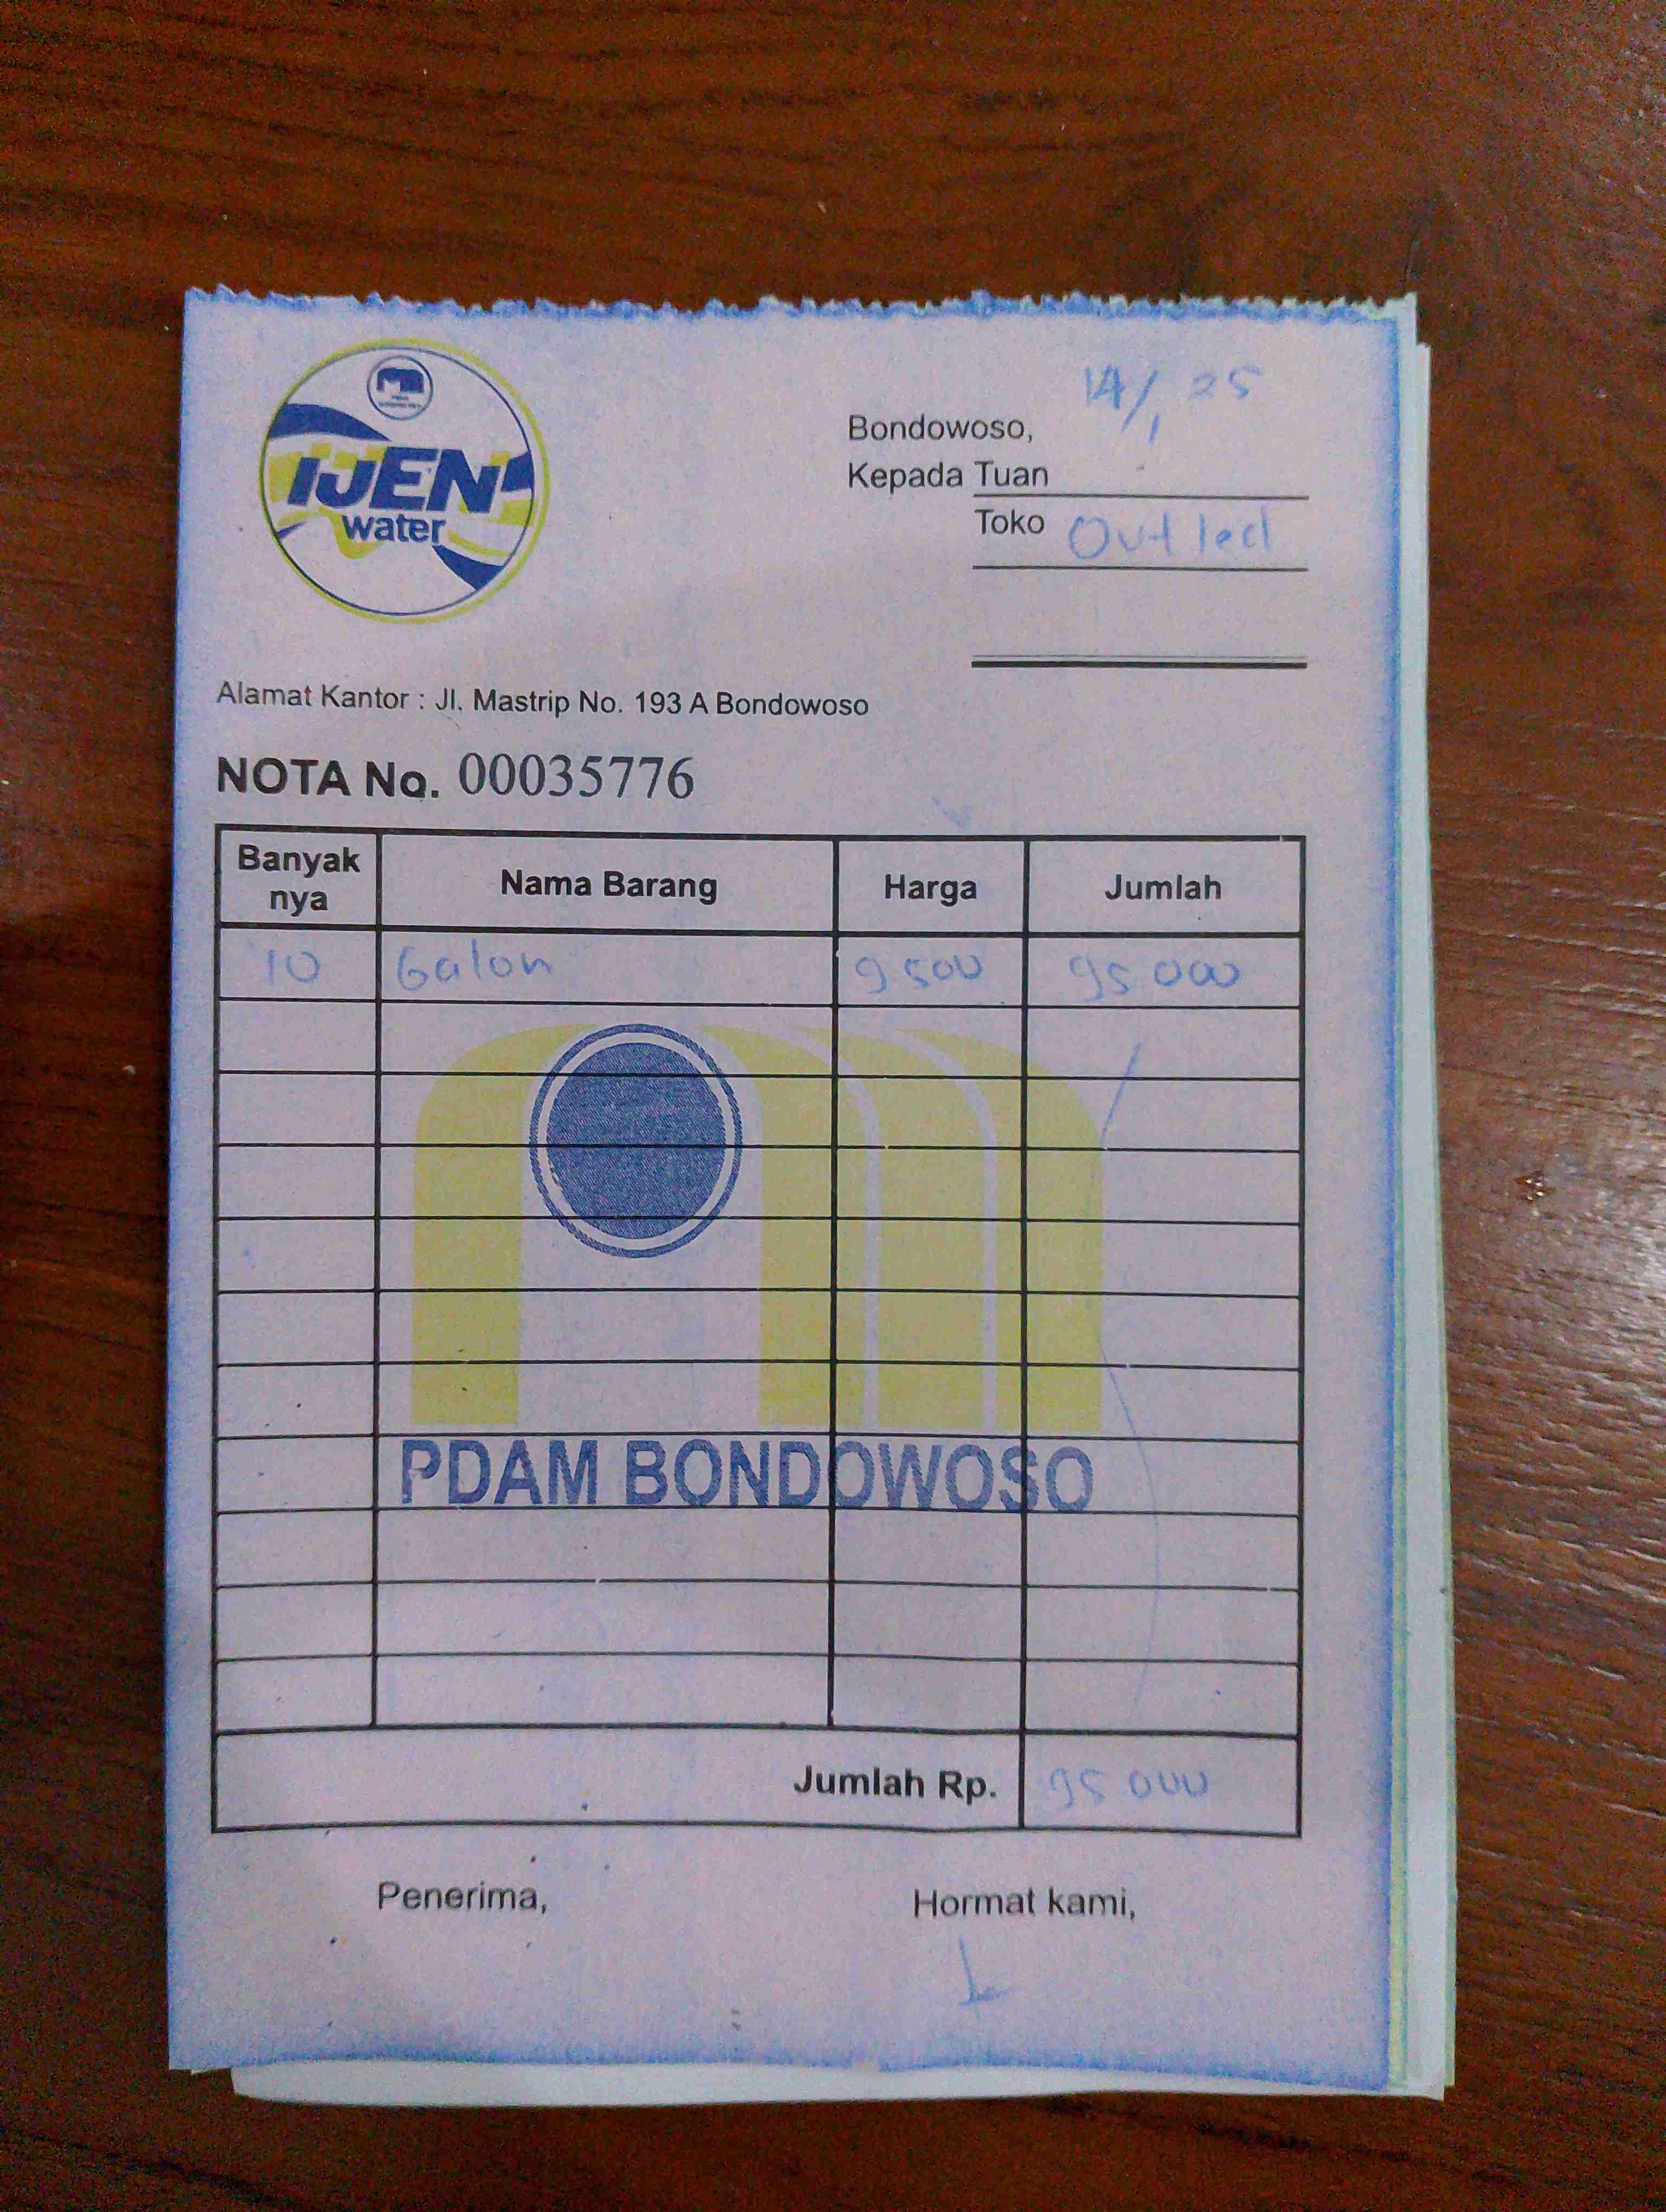 IJEN
water
14/1 25
Bondowoso,
Kepada Tuan
Toko Outled
Alamat Kantor : Jl. Mastrip No. 193 A Bondowoso
NOTA No. 00035776
Banyak nya Nama Barang Harga Jumlah
10 Galon 9500 95 000
PDAM BONDOWOSO
Jumlah Rp. 95 000
Penerima, Hormat kami,